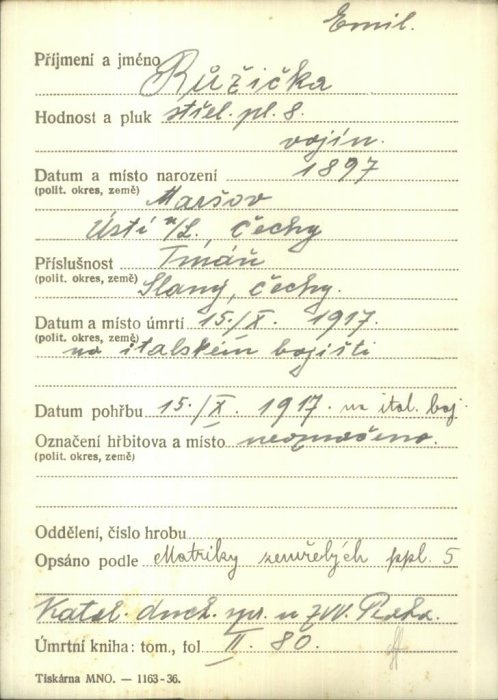 Emil.
Příjmení a jméno Růžička
Hodnost a pluk střel. pl. 8.
vojín.
Datum a místo narození 1897
(polit. okres, země) Maršov
Ústí n/L, Čechy
Příslušnost Tmáň
(polit. okres, země) Slaný, Čechy.
Datum a místo úmrtí 15./X. 1917.
(polit. okres, země) na italském bojišti
Datum pohřbu 15./X. 1917. na ital. boj.
Označení hřbitova a místo neoznačeno.
(polit. okres, země)
Oddělení, číslo hrobu
Opsáno podle Matriky zemřelých ppl. 5
Katol. duch. spr. u ZVV. Praha.
Úmrtní kniha: tom., fol II. 80.
Tiskárna MNO. — 1163-36.